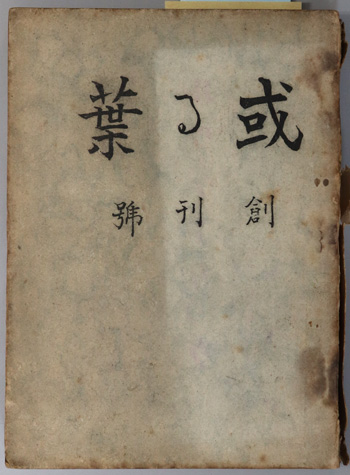 或る葉
創刊號